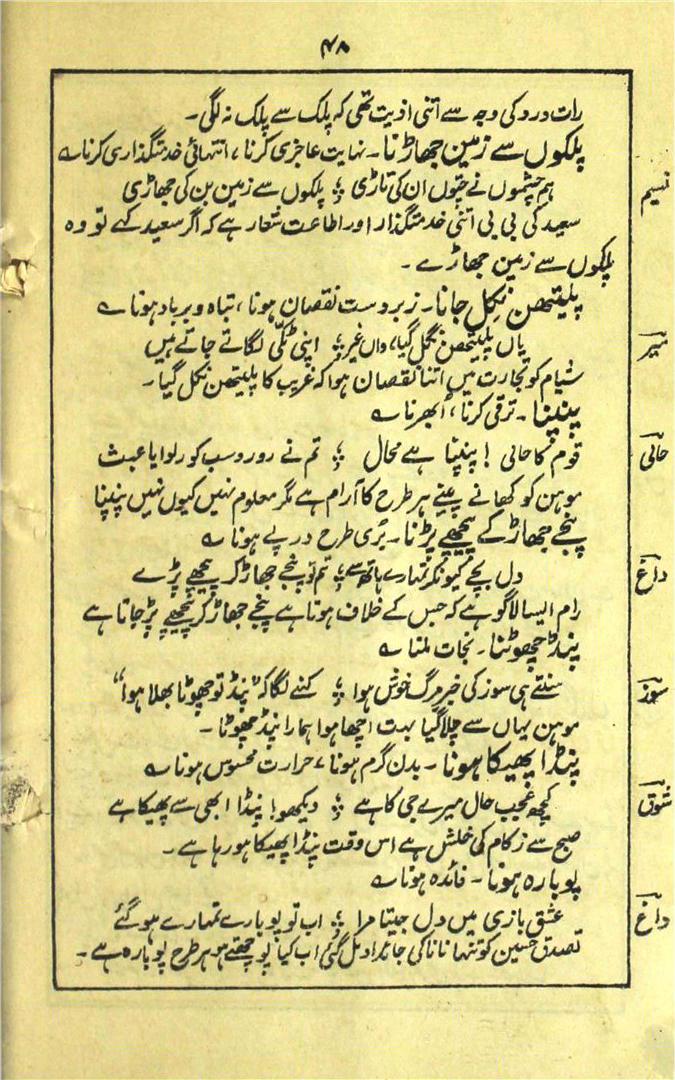 ۴۸
رات درد کی وجہ سے اتنی اذیت تھی کہ پلک سے پلک نہ لگی۔
پلکوں سے زمین جھاڑنا۔ نہایت عاجزی کرنا، انتہائی خدمتگذاری کرنا ؎
نسیم
ہم چشموں نے جتوں ان کی تاڑی ؛ پلکوں سے زمین بن کی جھاڑی
سعید کی بی بی اتنی خدمتگذار اور اطاعت شعار ہے کہ اگر سعید کہے تو وہ
پلکوں سے زمین جھاڑے۔
پلیتھن نکل جانا۔ زبردست نقصان ہونا، تباہ و برباد ہونا ؎
میر
یاں پلیتھن نکل گیا، واں غیر ؛ اپنی ٹکی لگائے جاتے ہیں
شیام کو تجارت میں اتنا نقصان ہوا کہ غریب کا پلیتھن نکل گیا۔
پنپنا۔ ترقی کرنا، اُبھرنا ؎
حالی
قوم کا حالی ! پنپنا ہے محال ؛ تم نے رو رو سب کو رلوایا عبث
موہن کو کھانے پینے ہر طرح کا آرام ہے مگر معلوم نہیں کیوں نہیں پنپتا
پنجے جھاڑ کے پیچھے پڑنا۔ بُری طرح درپے ہونا ؎
داغ
دل بچے کیونکر تمہارے ہاتھ سے ؛ تم تو پنجے جھاڑ کر پیچھے پڑے
رام ایسا لاگو ہے کہ جس کے خلاف ہوتا ہے پنجے جھاڑ کر پیچھے پڑ جاتا ہے
پنڈ چھوٹنا۔ نجات ملنا ؎
سوز
سنتے ہی سوز کی خبر مرگ خوش ہوا ؛ کہنے لگا کہ "پنڈ تو چھوٹا بھلا ہوا"
موہن یہاں سے چلا گیا بہت اچھا ہوا ہمارا پنڈ چھوٹا۔
پنڈا پھیکا ہونا۔ بدن گرم ہونا، حرارت محسوس ہونا ؎
شوق
کچھ عجیب حال میرے جی کا ہے ؛ دیکھو! پنڈا ابھی سے پھیکا ہے
صبح سے زکام کی خلش ہے اس وقت پنڈا پھیکا ہو رہا ہے۔
پو بارہ ہونا۔ فائدہ ہونا ؎
داغ
عشق بازی میں دل جیتا مرا ؛ اب تو پو بارے تمہارے ہو گئے
تصدق حسین کو تنہا نانا کی جائداد مل گئی اب کیا پوچھتے ہو ہر طرح پو بارہ ہے۔